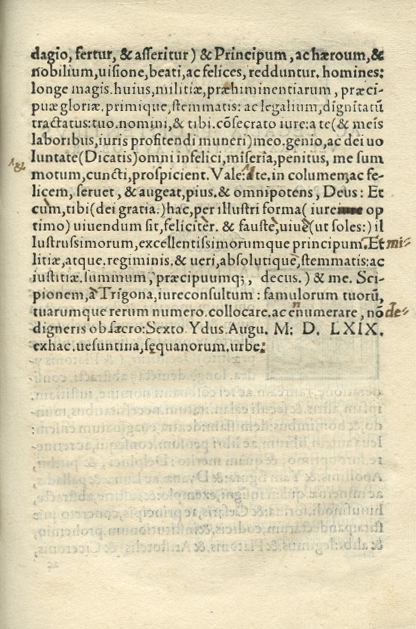 dagio, fertur, & asseritur) & Principum, ac hæroum, &
nobilium, uisione, beati, ac felices, redduntur. homines:
longe magis. huius, militiæ, præhiminentiarum, præci-
puæ gloriæ, primique, stemmatis: ac legalium, dignitatū
tractatus: tuo. nomini, & tibi. cōsecrato iure: a te (& meis
laboribus, iuris profitendi muneri) meo. genio, ac dei uo
luntate (Dicatis) omni infelici, miseria, penitus, me sum
motum, cuncti, prospicient. Vale. te, in columem, ac fe-
licem, seruet, & augeat, pius. & omnipotens, Deus: Et
cum, tibi (dei gratia.) hac, per illustri forma (iure op
timo) uiuendum sit, feliciter. & fauste, uiue (ut soles:) il
lustrissimorum, excellentissimorumque principum. Et mi-
litiæ, atque. regiminis. & ueri, absolutique, stemmatis: ac
iustitiæ. summum, præcipuumq;, decus.) & me. Sci-
pionem, à Trigona, iureconsultum: famulorum tuorū,
tuarumque rerum numero. collocare. ac enumerare, nō de-
digneris obsæcro: Sexto Ydus. Augu. M: D. LXIX.
ex hac. uesuntina, sequanorum. urbe: